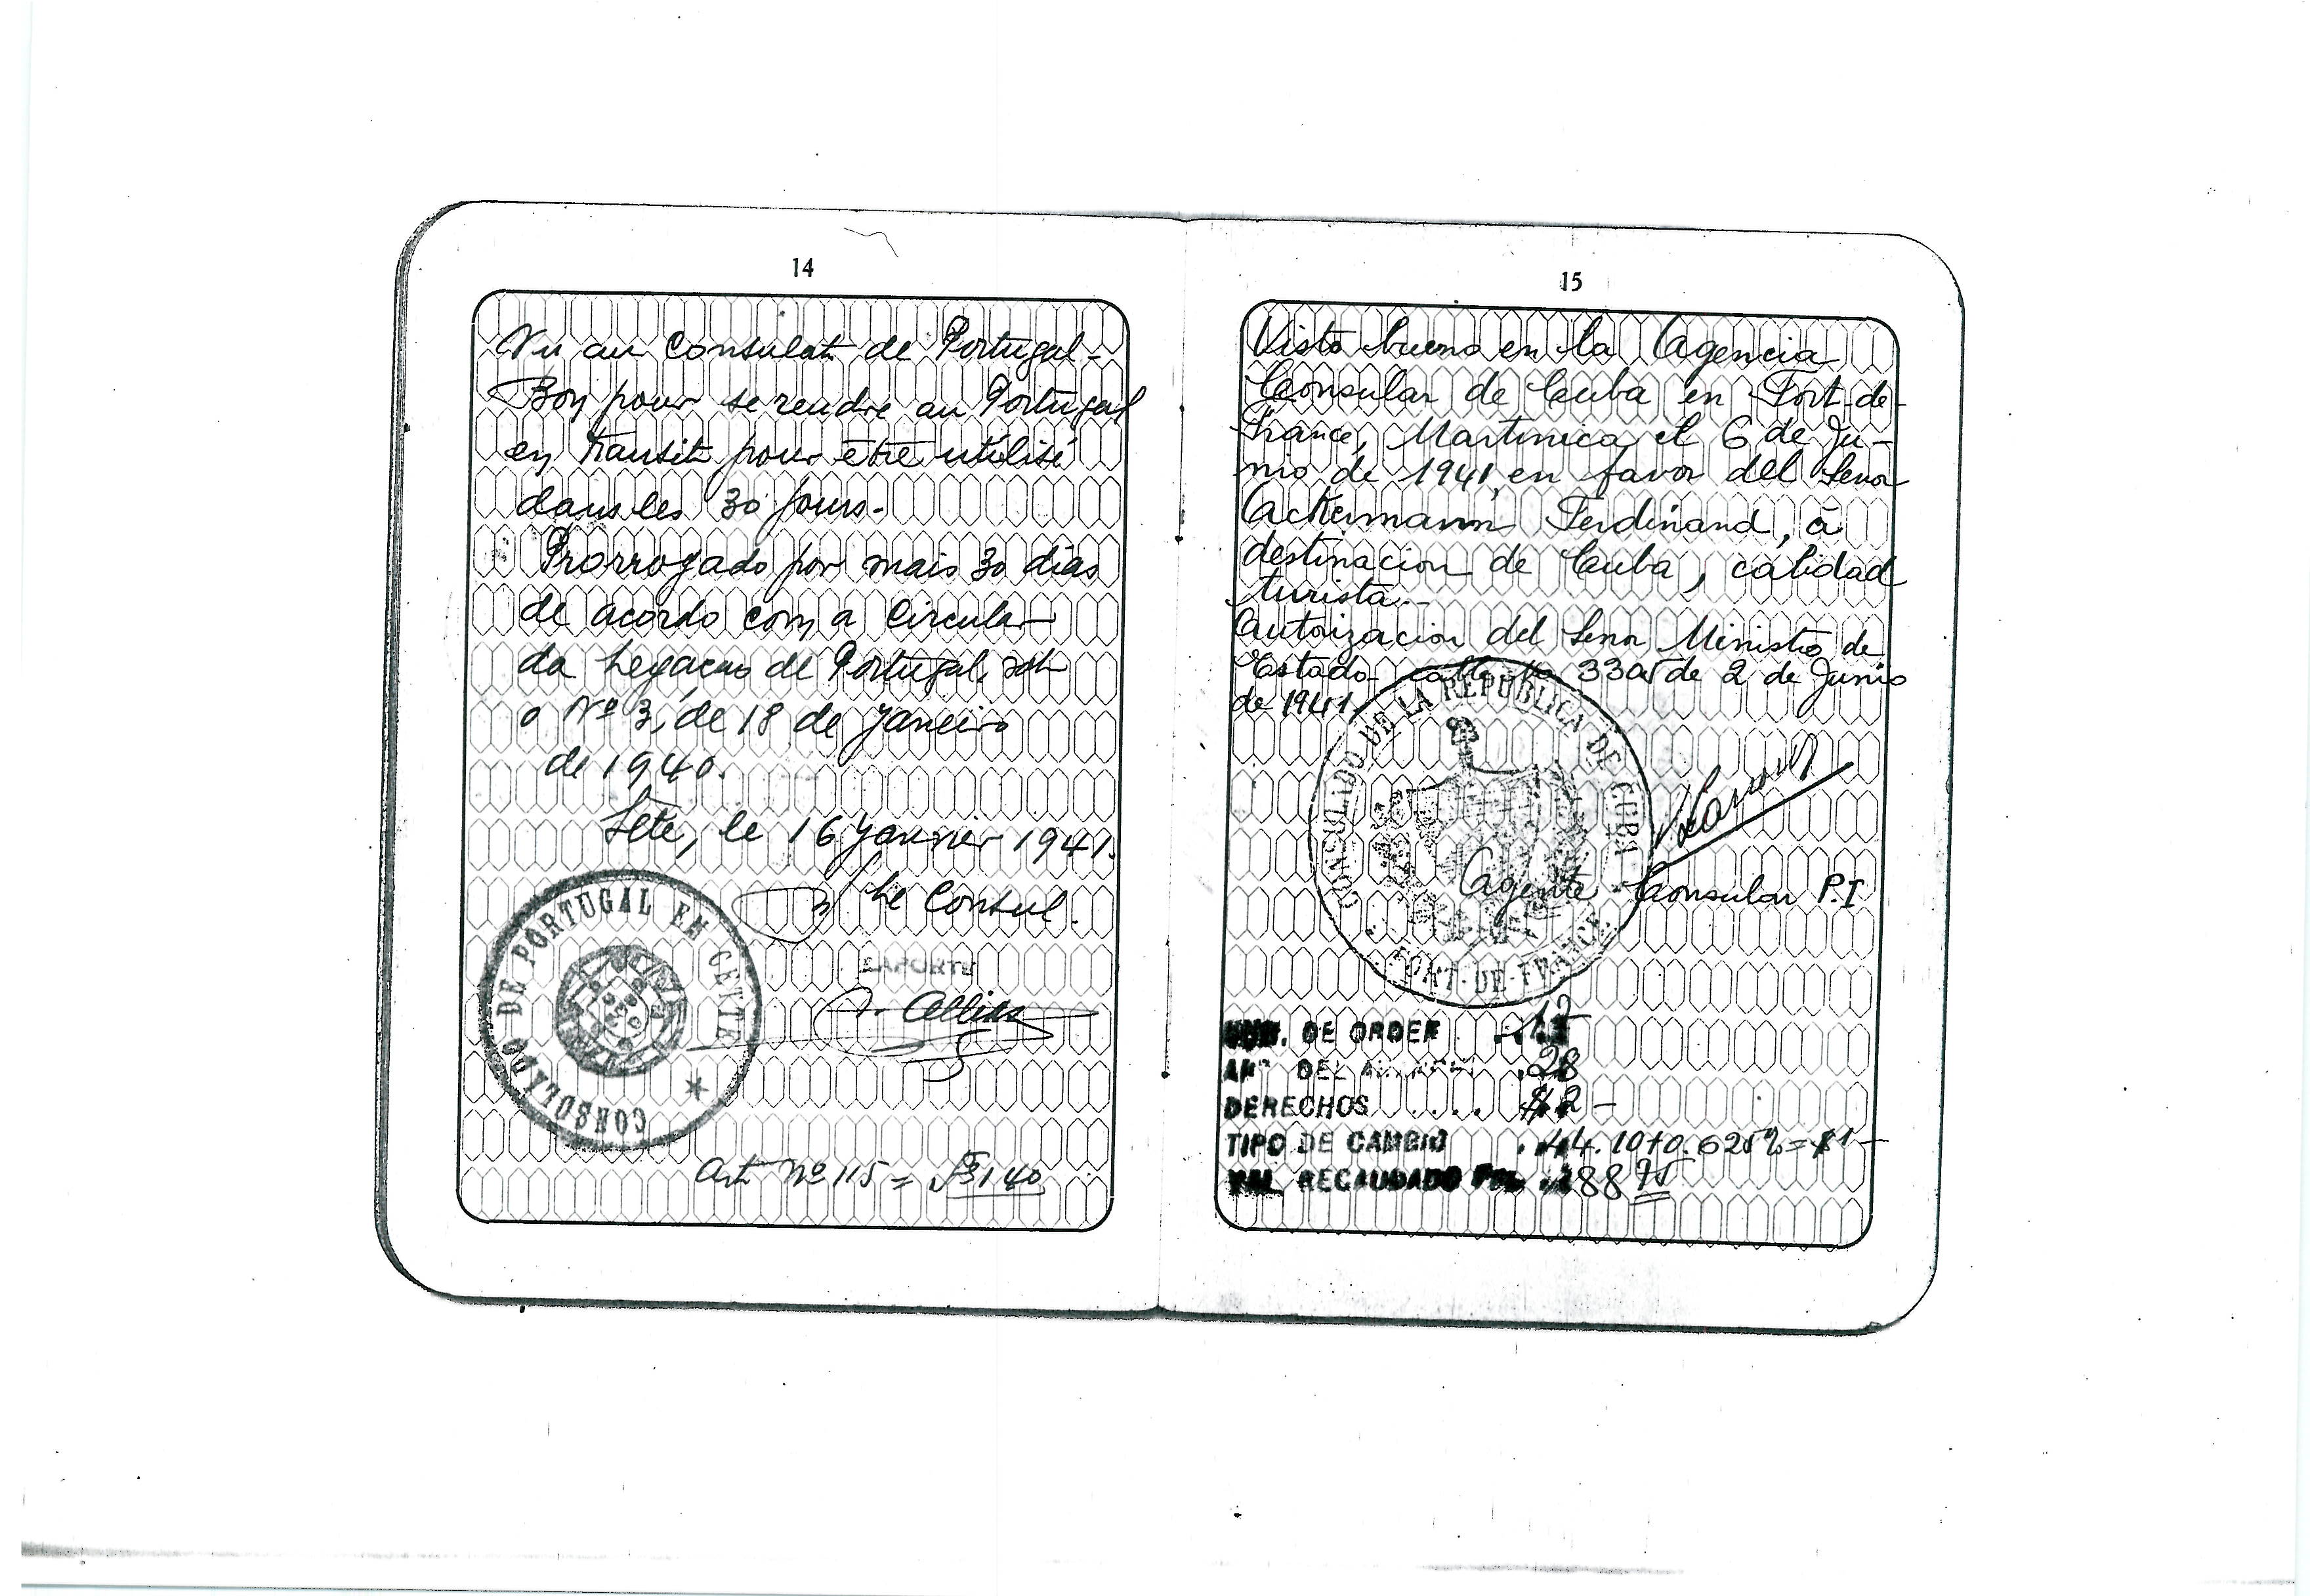 14
Vu au Consulat de Portugal-
Bon pour se rendre au Portugal
en transit pour être utilisé
dans les 30 jours-
Prorrogado por mais 30 dias
de acordo com a Circular
da Legacao de Portugal, sob
o Nº 3, de 18 de Janeiro
de 1940.
Sète, le 16 Janvier 1941.
Le Consul.
CONSOLADO DE PORTUGAL EM CETTE
LAPORTE
Art Nº 115 = 140
15
Visto bueno en la Agencia
Consular de Cuba en Fort-de-
France, Martinica el 6 de Ju-
nio de 1941, en favor del Senor
Ackermann Ferdinand, à
destinacion de Cuba, calidad
turista-
Autorizacion del Senor Ministro de
Estado- de 2 de Junio
de 1941.
CONSULADO DE LA REPUBLICA DE CUBA
FORT-DE-FRANCE
Agente Consular P.I
DE ORDER 12
DEL 28
DERECHOS .... $2-
TIPO DE CAMBIO 44.10+0.625% = $1-
VAL. RECAUDADO 88 75